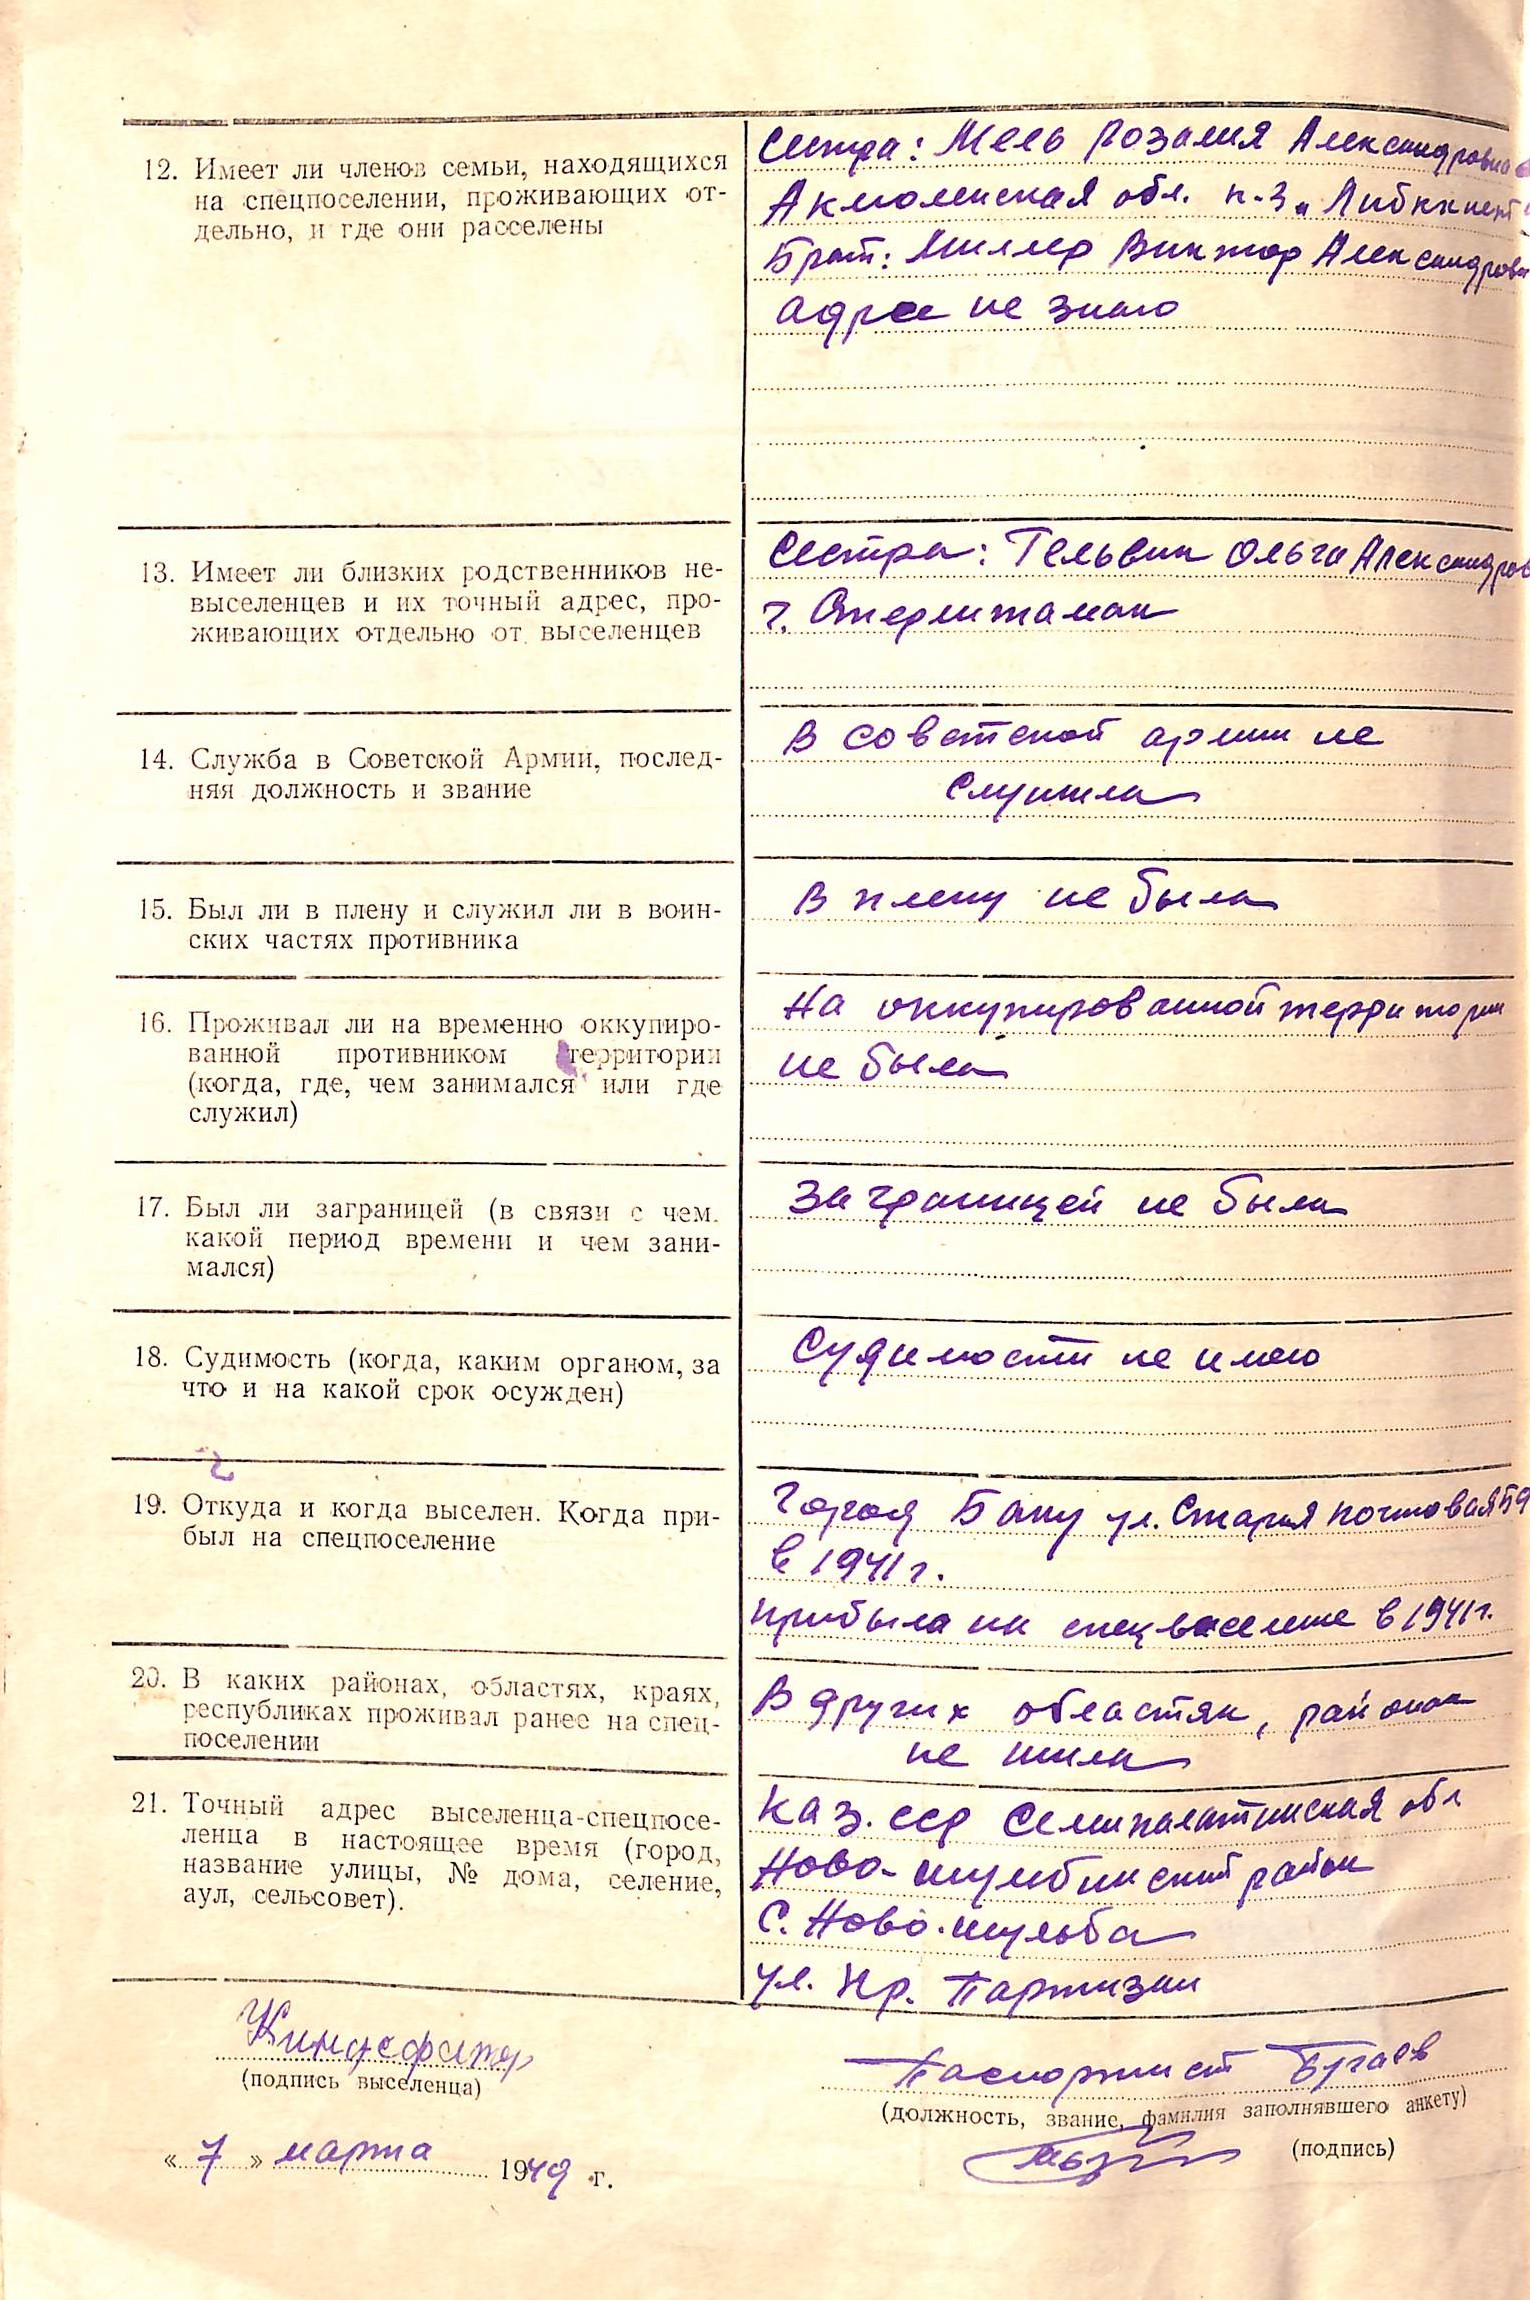 12. Имеет ли членов семьи, находящихся
на спецпоселении, проживающих от-
дельно, и где они расселены
Сестра: Мель Розалия Александровна
Акмолинская обл. к-з „Либкнехт"
Брат: Миллер Виктор Александрови
адрес не знаю
13. Имеет ли близких родственников не-
выселенцев и их точный адрес, про-
живающих отдельно от выселенцев
Сестра: Гельвик Ольга Александров
г. Стерлитамак
14. Служба в Советской Армии, послед-
няя должность и звание
В советской армии не
служила
15. Был ли в плену и служил ли в воин-
ских частях противника
В плену не была
16. Проживал ли на временно оккупиро-
ванной противником территории
(когда, где, чем занимался или где
служил)
На оккупированной территории
не была
17. Был ли заграницей (в связи с чем.
какой период времени и чем зани-
мался)
За границей не была
18. Судимость (когда, каким органом, за
что и на какой срок осужден)
Судимости не имею
19. Откуда и когда выселен. Когда при-
был на спецпоселение
Город Баку ул. Старая почтовая 59
в 1941 г.
прибыла на спецвыселение в 1941 г.
20. В каких районах, областях, краях,
республиках проживал ранее на спец-
поселении
В других областях, районах
не жила
21. Точный адрес выселенца-спецпосе-
ленца в настоящее время (город,
название улицы, № дома, селение,
аул, сельсовет).
Каз. сср Семипалатинская обл
Ново-шульбинский район
с. Ново-шульба
ул. Кр. Партизан
Киндсфатер
(подпись выселенца)
Паспортист Бугаев
(должность, звание, фамилия заполнявшего анкету)
(подпись)
« 7 » марта 1949 г.